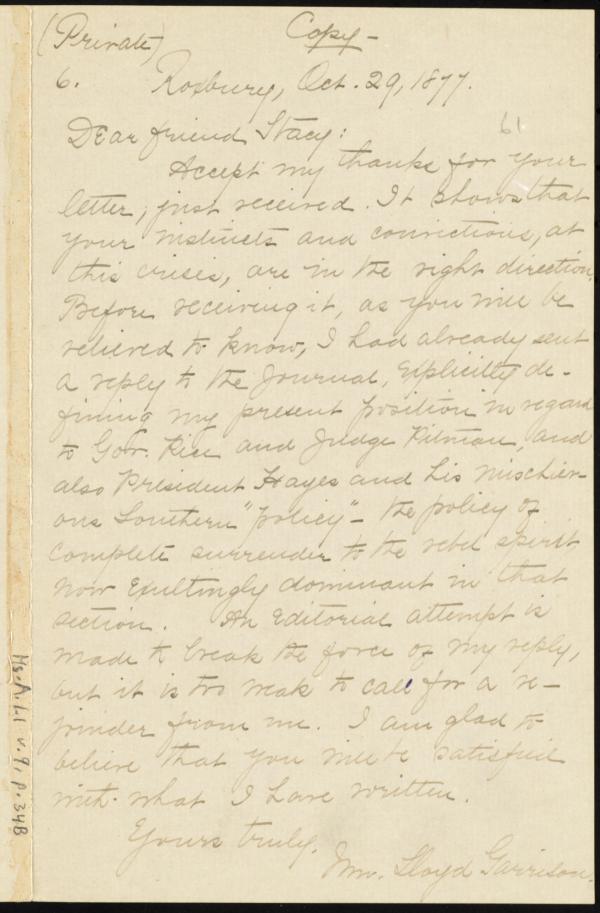 (Private) Copy-
6. Roxbury, Oct. 29, 1877.
61
Dear friend Stacy:
Accept my thanks for your
letter, just received. It shows that
your instincts and convictions, at
this crisis, are in the right direction.
Before receiving it, as you will be
relieved to know, I had already sent
a reply to the Journal, explicitly de-
fining my present position in regard
to Gov. Rice and Judge Pitman, and
also President Hayes and his mischiev-
ous Southern "policy" - the policy of
complete surrender to the rebel spirit
now exultingly dominant in that
section. An editorial attempt is
made to break the force of my reply,
but it is too weak to call for a re-
joinder from me. I am glad to
believe that you will be satisfied
with what I have written.
Yours truly,
Wm. Lloyd Garrison.
Ms.A.1.1 v.9, p.34B